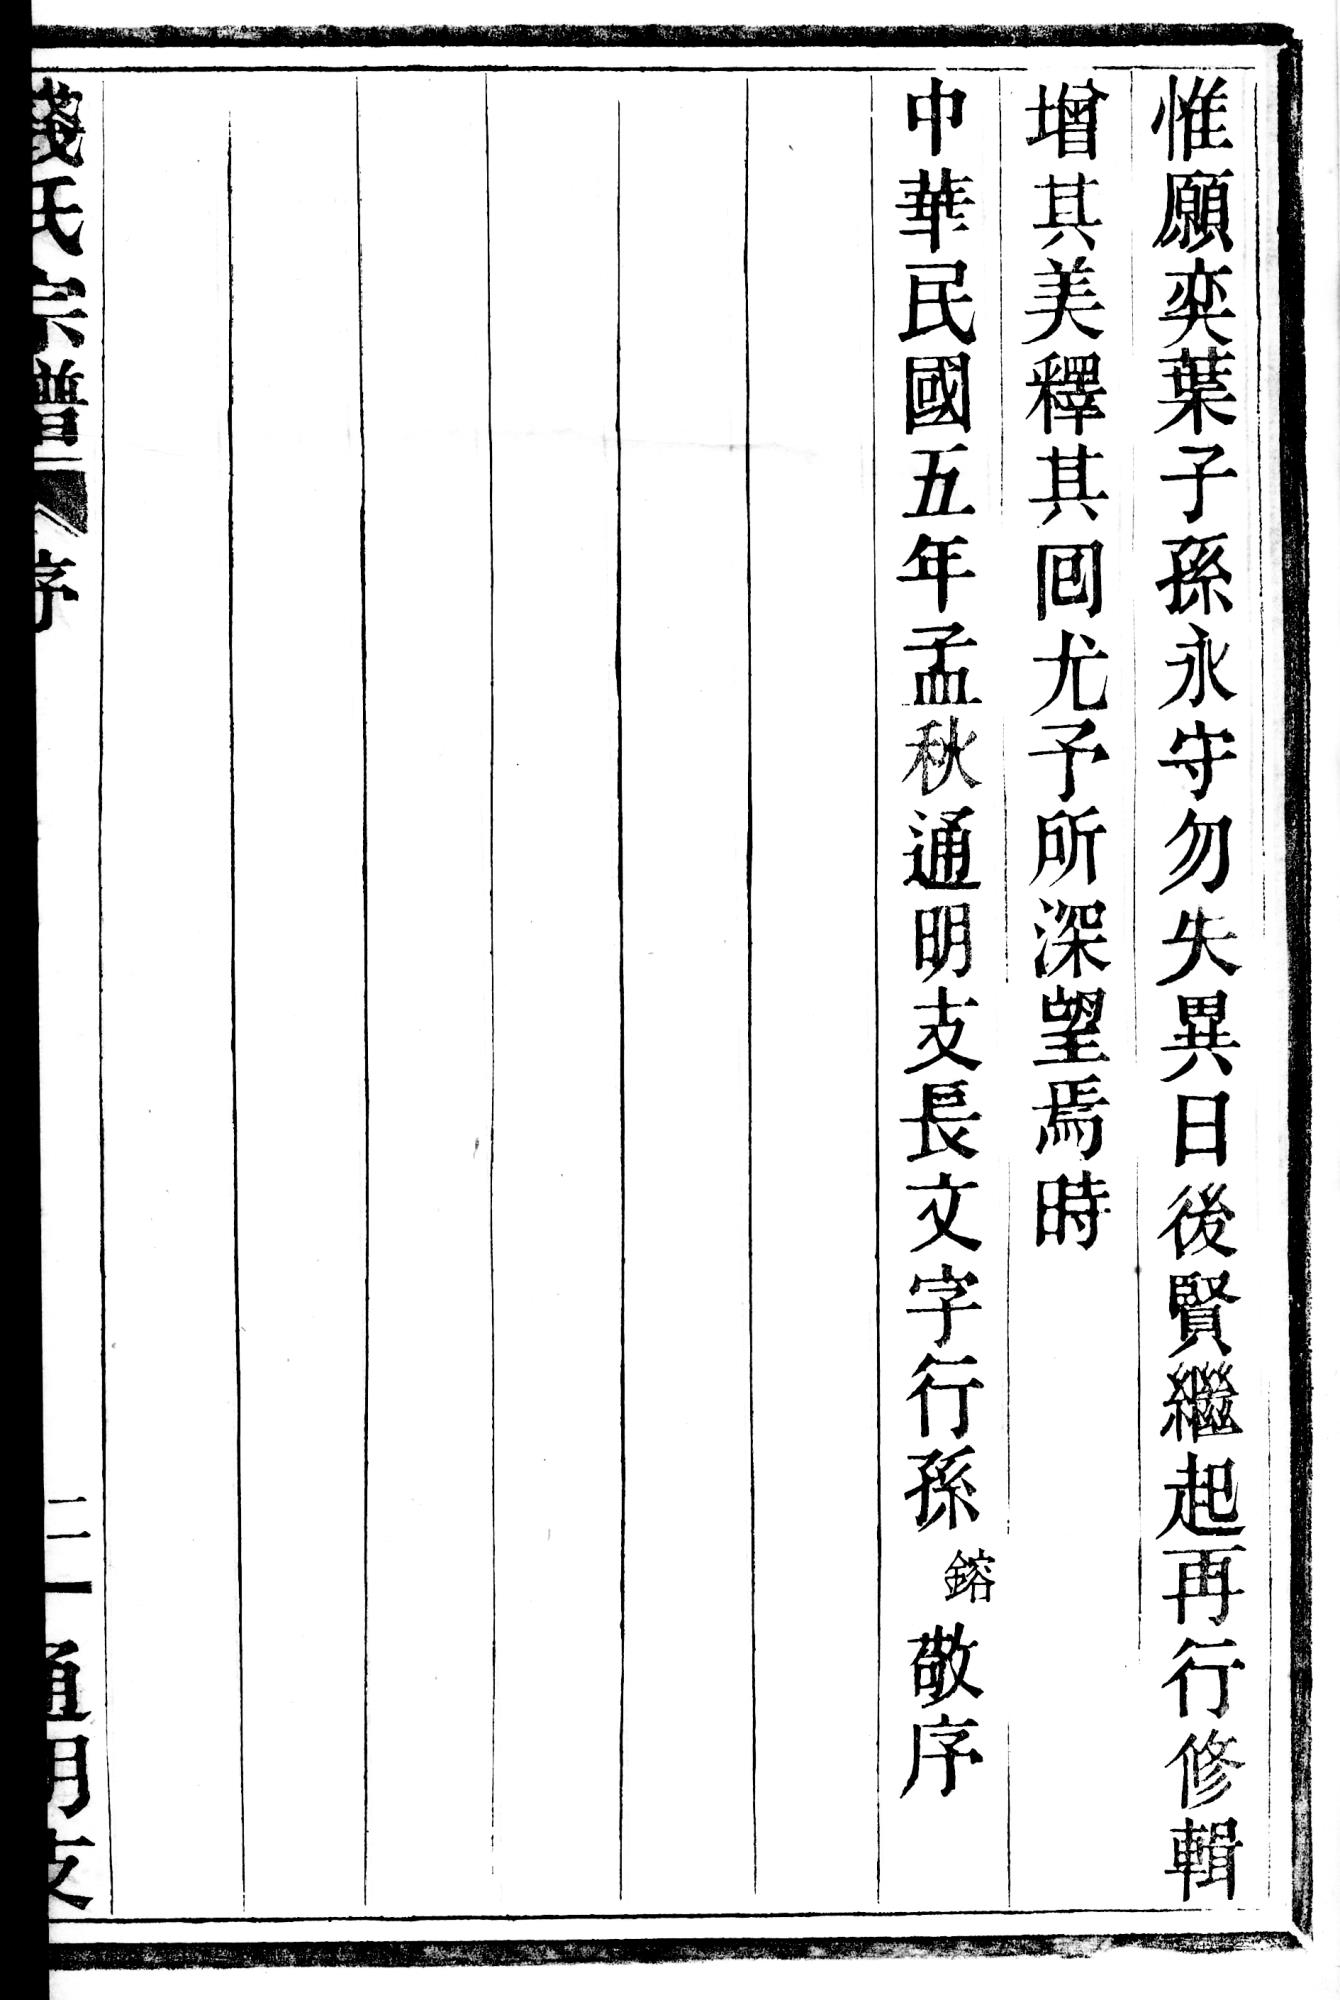 惟願奕葉子孫永守勿失異日後賢繼起再行修輯
增其美釋其回尤予所深望焉時
中華民國五年孟秋通明支長文字行孫鎔敬序
錢氏宗譜 序 二 通明支